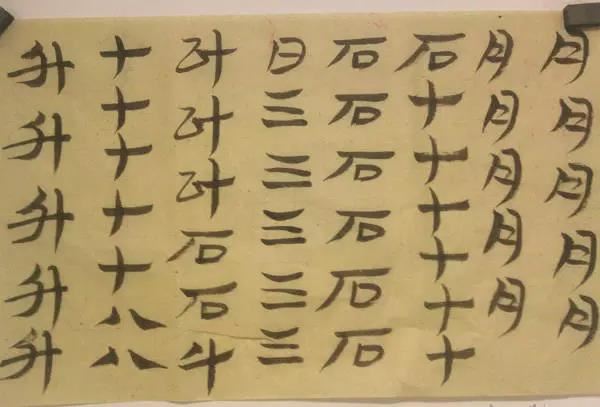 月月月月月
月月月月月
石十十十十十十
石石石石石石
日三三三三三
石石斗
十十十十十八八
升升升升升